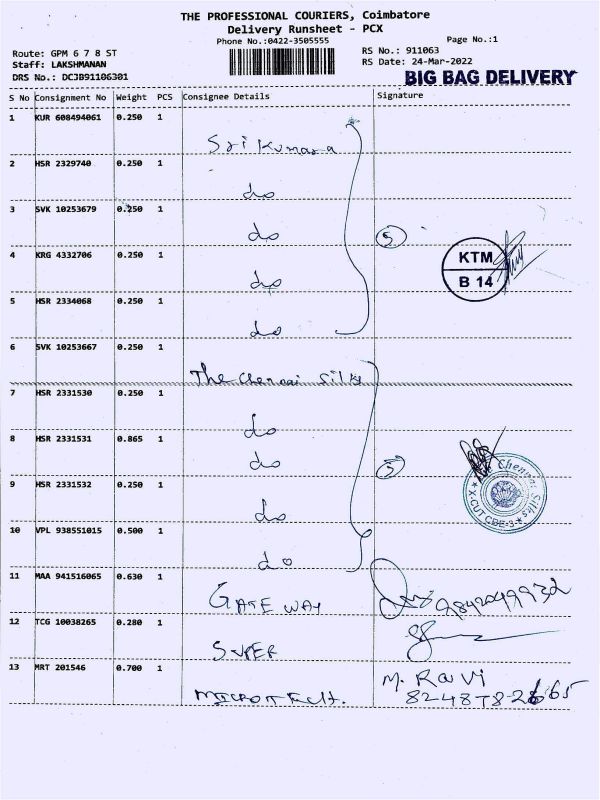 THE PROFESSIONAL COURIERS, Coimbatore
Delivery Runsheet - PCX
Phone No.:0422-3505555
Page No.:1
Route: GPM 6 7 8 ST
RS No.: 911063
Staff: LAKSHMANAN
RS Date: 24-Mar-2022
DRS No.: DCJB91106301
BIG BAG DELIVERY
S No Consignment No Weight PCS Consignee Details Signature
1 KUR 608494061 0.250 1
Sri Kumara
2 HSR 2329740 0.250 1
do
3 SVK 10253679 0.250 1
do
5
4 KRG 4332706 0.250 1
do
KTM
B 14
5 HSR 2334068 0.250 1
do
6 SVK 10253667 0.250 1
The chennai silks
7 HSR 2331530 0.250 1
do
8 HSR 2331531 0.865 1
do
5
9 HSR 2331532 0.250 1
do
Chennai Silks
X-CUT CBE-3
10 VPL 938551015 0.500 1
do
11 MAA 941516065 0.630 1
GATE WAY
9842049932
12 TCG 10038265 0.280 1
SUPER
13 MRT 201546 0.700 1
M. Ravi
MICROTECH.